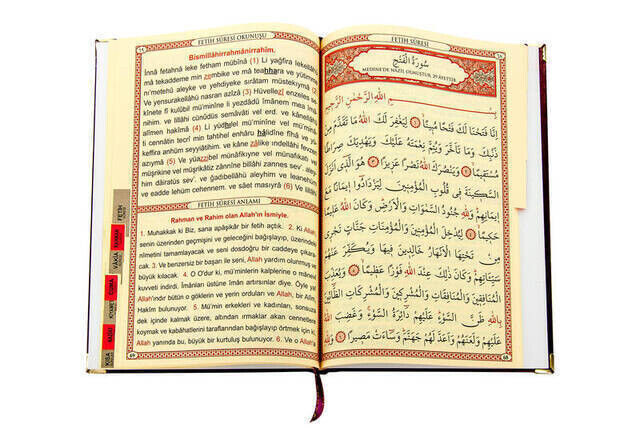 FETİH SÛRESİ OKUNUŞU
Bismillâhirrahmânirrahîm,
İnnâ fetahnâ leke fetham mübînâ (1) Li yağfira lekellâhü
mâ tekaddeme min zembike ve mâ teahhara ve yütimme
ni'metehû aleyke ve yehdiyeke sırâtam müstekıymâ (2)
Ve yensurakellâhü nasran azîzâ (3) Hüvellezî enzeles se
kînete fî kulûbil mü'minîne li yezdâdû îmânem mea îmâ
nihim. ve lillâhi cünûdüs semâvâti vel erd. ve kânellâhü
alîmen hakîmâ (4) Li yüdhılel mü'minîne vel mü'minâ
ti cennâtin tecrî min tahtihel enhâru hâlidîne fîhâ ve yü
keffira anhüm seyyiâtihim. ve kâne zâlike ındellâhi fevzen
azıymâ (5) Ve yüazzibel münâfikıyne vel münâfikati vel
müşrikîne vel müşrikâtiz zânnîne billâhi zannes sev'. aley
him dâiratüs sev'. ve ğadıbellâhü aleyhim ve leanehüm
ve eadde lehüm cehennem. ve sâet masıyrâ (6) Ve lillâhi
FETİH SÛRESİ ANLAMI
Rahman ve Rahim olan Allah'ın İsmiyle.
1. Muhakkak ki Biz, sana apaşikâr bir fetih açtık. 2. Ki Allah
senin üzerinden geçmişini ve geleceğini bağışlayıp, üzerindeki
nîmetini tamamlayacak ve seni dosdoğru bir caddeye çıkara
cak. 3. Ve benzersiz bir başarı ile seni, Allah yardım olunmuş ve
büyük kılacak. 4. O O'dur ki, mü'minlerin kalplerine o mâne
kuvveti indirdi. İmânları üstüne îmân artırsınlar diye. Öyle ya
Allah'ındır bütün o göklerin ve yerin orduları ve Allah, bir Alîm
Hakîm bulunuyor. 5. Mü'min erkekleri ve kadınları, sonsuza
dek içinde kalmak üzere, altından ırmaklar akan cennetlere
koymak ve kabahatlerini taraflarından bağışlayıp örtmek için ki,
Allah yanında bu, büyük bir kurtuluş bulunuyor. 6. Ve o
69
FETİH SÛRESİ
سُورَةُ الْفَتْحِ
MEDİNE'DE NAZİL OLMUŞTUR, 29 ÂYETTİR
بِسْمِ اللّٰهِ الرَّحْمٰنِ الرَّحِيمِ
اِنَّا فَتَحْنَا لَكَ فَتْحًا مُبِينًا ﴿١﴾ لِيَغْفِرَ لَكَ اللّٰهُ مَا تَقَدَّمَ مِنْ
ذَنْبِكَ وَمَا تَاَخَّرَ وَيُتِمَّ نِعْمَتَهُ عَلَيْكَ وَيَهْدِيَكَ صِرَاطًا
مُسْتَقِيمًا ﴿٢﴾ وَيَنْصُرَكَ اللّٰهُ نَصْرًا عَزِيزًا ﴿٣﴾ هُوَ الَّذِى اَنْزَلَ
السَّكِينَةَ فِى قُلُوبِ الْمُؤْمِنِينَ لِيَزْدَادُوا اِيمَانًا مَعَ
اِيمَانِهِمْ وَلِلّٰهِ جُنُودُ السَّمٰوَاتِ وَالْاَرْضِ وَكَانَ اللّٰهُ عَلِيمًا
حَكِيمًا ﴿٤﴾ لِيُدْخِلَ الْمُؤْمِنِينَ وَالْمُؤْمِنَاتِ جَنَّاتٍ تَجْرِى
مِنْ تَحْتِهَا الْاَنْهَارُ خَالِدِينَ فِيهَا وَيُكَفِّرَ عَنْهُمْ
سَيِّئَاتِهِمْ وَكَانَ ذٰلِكَ عِنْدَ اللّٰهِ فَوْزًا عَظِيمًا ﴿٥﴾ وَيُعَذِّبَ
الْمُنَافِقِينَ وَالْمُنَافِقَاتِ وَالْمُشْرِكِينَ وَالْمُشْرِكَاتِ الظَّانِّينَ
بِاللّٰهِ ظَنَّ السَّوْءِ عَلَيْهِمْ دَائِرَةُ السَّوْءِ وَغَضِبَ اللّٰهُ
عَلَيْهِمْ وَلَعَنَهُمْ وَاَعَدَّ لَهُمْ جَهَنَّمَ وَسَاءَتْ مَصِيرًا ﴿٦﴾ وَلِلّٰهِ
68
FETİH
VÂKIA
CUMA